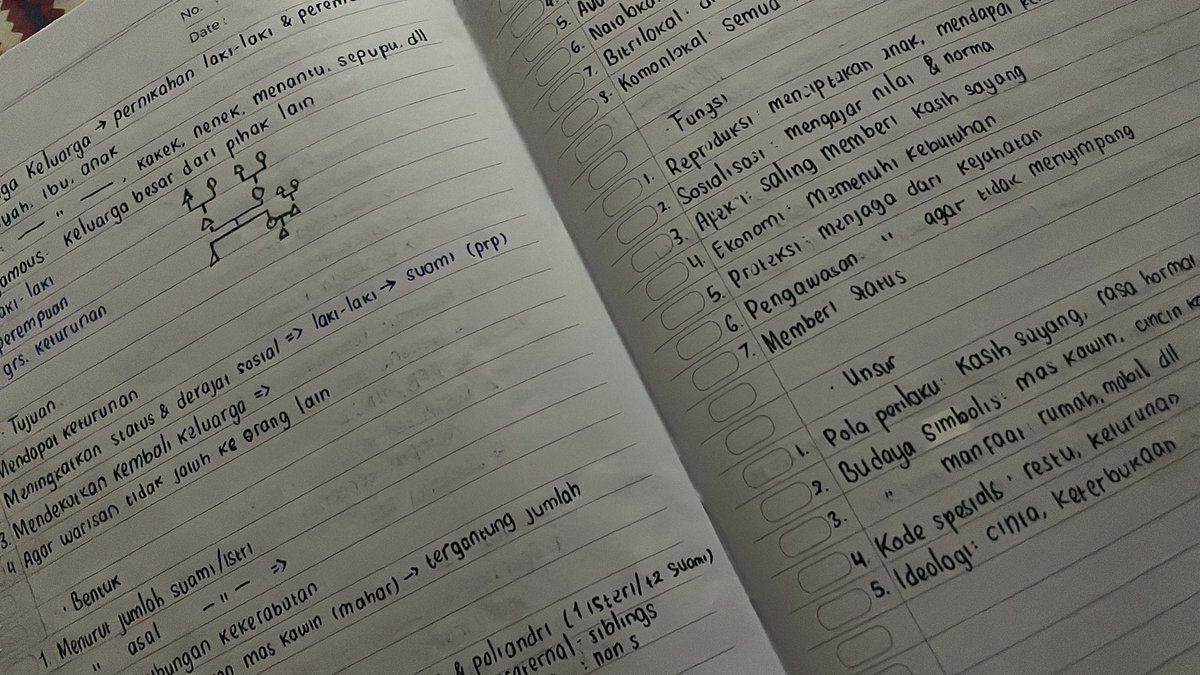 No. :
Date :
ga Keluarga → pernikahan laki-laki &
yah, ibu, anak
— " —, kakek, nenek, menantu, sepupu, dll
amous: keluarga besar dari pihak lain
aki-laki
perempuan
grs. keturunan
· Tujuan
Mendapat keturunan
Meningkatkan status & derajat sosial => laki-laki → suami (prp)
3. Mendekatkan kembali keluarga =>
4 Agar warisan tidak jatuh ke orang lain
· Bentuk
1. Menurut jumlah suami/istri
" asal — " — =>
ubungan kekerabatan
an mas kawin (mahar) → tergantung jumlah
& poliandri (1 isteri/+2 suami)
: siblings
: non s
5.
6.
7. Bitrilokal:
8. Komonlokal: semua
· Fungsi
1. Reproduksi: menciptakan anak, mendapat
2. Sosialisasi: mengajar nilai & norma
3. Afeksi: saling memberi kasih sayang
4. Ekonomi: memenuhi kebutuhan
5. Proteksi: menjaga dari kejahatan
6. Pengawasan: " agar tidak menyimpang
7. Memberi status
· Unsur
1. Pola perilaku: kasih sayang, rasa hormat
2. Budaya simbolis: mas kawin, cincin
3. " manfaat: rumah, mobil dll
4. Kode spesialis: restu, keturunan
5. Ideologi: cinta, keterbukaan